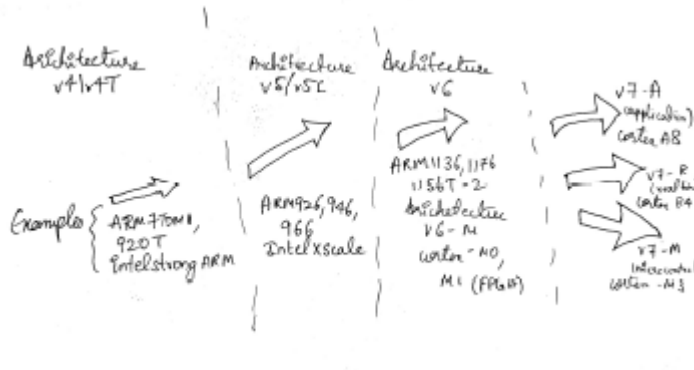 Architecture
v4/v4T
Examples
ARM7TDMI,
920T
Intel strong ARM
Architecture
v5/v5E
ARM926, 946,
966
Intel XScale
Architecture
v6
ARM1136, 1176
1156T-2
Architecture
v6-M
cortex-M0,
M1 (FPGA)
v7-A
(application)
cortex A8
v7-R
cortex R4
v7-M
cortex-M3